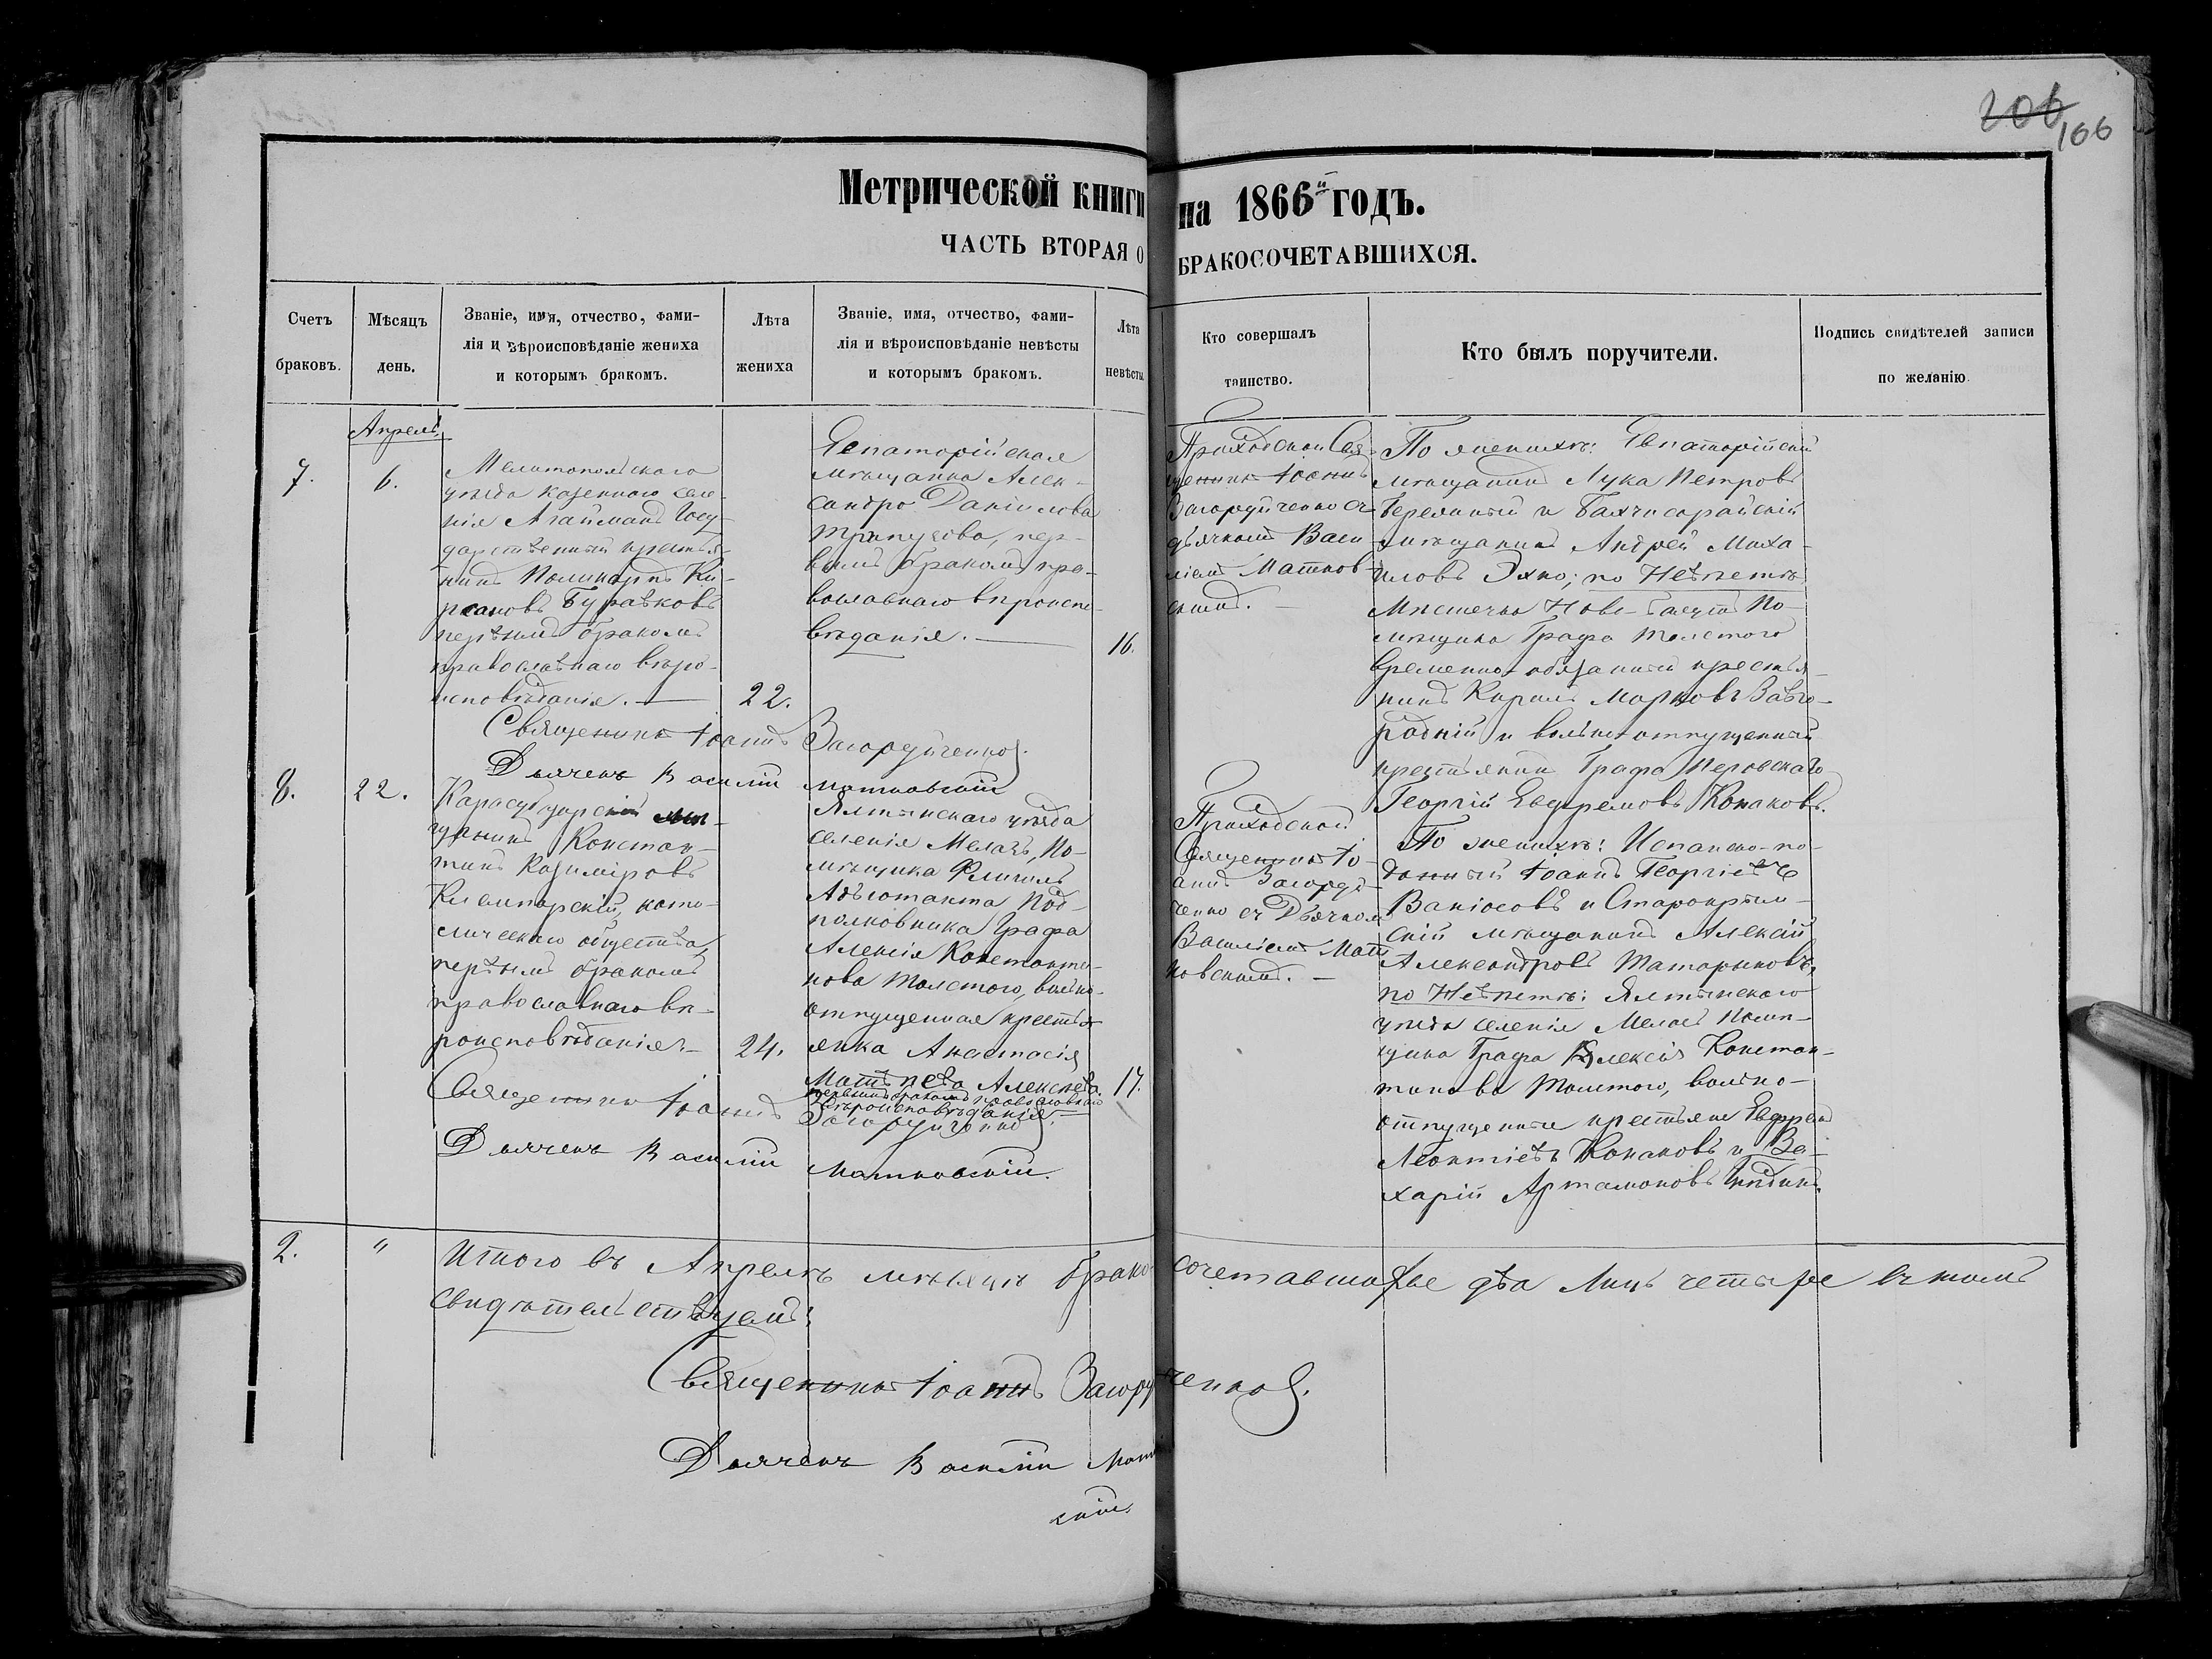 206
166
Метрической книги на 1866й годъ.
ЧАСТЬ ВТОРАЯ О БРАКОСОЧЕТАВШИХСЯ.
Счетъ браковъ.
Мѣсяцъ день.
Званіе, имя, отчество, фами-
лія и вѣроисповѣданіе жениха
и которымъ бракомъ.
Лѣта жениха
Званіе, имя, отчество, фами-
лія и вѣроисповѣданіе невѣсты
и которымъ бракомъ.
Лѣта невѣсты.
Кто совершалъ
таинство.
Кто былъ поручители.
Подпись свидѣтелей записи
по желанію.
Апрель
7.
6.
Мелитопольскаго
уѣзда казеннаго селе-
нія Агайманъ Госу-
дарственный крестья-
нинъ Поликарпъ Ки-
рсановъ Бураковъ
первымъ бракомъ
православнаго вѣро-
исповѣданія. —
22.
Евпаторійская
мѣщанка Алек-
сандра Даніилова
пер-
вымъ бракомъ пра-
вославнаго вѣроиспо-
вѣданія. —
16.
Приходской Свя-
щенникъ Іоаннъ
Загоруйченко съ
дьячкомъ Васи-
ліемъ Матков-
скимъ. —
По женихѣ: Евпаторійскій
мѣщанинъ Лука Петровъ
и Бахчисарайскій
мѣщанинъ Андрей Миха-
иловъ Эхно; по Невѣстѣ
Мѣстечка Ново- По-
мѣщика Графа Толстого
временно-обязанный крестья-
нинъ Кирилъ Марковъ Заго-
родній и вольноотпущенный
крестьянинъ Графа Перовскаго
Георгій Евфремовъ Конаковъ.
Священникъ Іоаннъ Загоруйченко.
Дьячекъ Василій Матковскій
8.
22.
Карасубазарскій мѣ-
щанинъ Констан-
тинъ Казиміровъ
като-
лическаго общества,
первымъ бракомъ
православнаго вѣ-
роисповѣданія. —
24.
Ялтинскаго уѣзда
селенія Меласъ, По-
мѣщика Флигель
Адъютанта Под-
полковника Графа
Алексія Константи-
нова Толстого, вольно-
отпущенная крестья-
янка Анастасія
Матвѣева Алексѣева.
первымъ бракомъ православнаго
вѣроисповѣданія. —
17.
Приходской
Священникъ Іо-
аннъ Загоруй-
ченко съ Дьячкомъ
Василіемъ Мат-
ковскимъ. —
По женихѣ: Испанско-по-
данный Іоаннъ Георгіевъ
и Старокрым-
скій мѣщанинъ Алексій
Александровъ Татариновъ,
по Невѣстѣ: Ялтинскаго
уѣзда селенія Меласъ Помѣ-
щика Графа Алексія Констан-
тинова Толстого, вольно-
отпущенные крестьяне Евфремъ
Леонтіевъ Конаковъ и За-
харій Артамоновъ
Священникъ Іоаннъ Загоруйченко.
Дьячекъ Василій Матковскій.
2.
"
Итого въ Апрелѣ мѣсяцѣ бракосочетавшихся два лицъ четыре въ томъ
свидѣтельствуемъ:
Священникъ Іоаннъ Загоруйченко.
Дьячекъ Василій Матков-
скій.